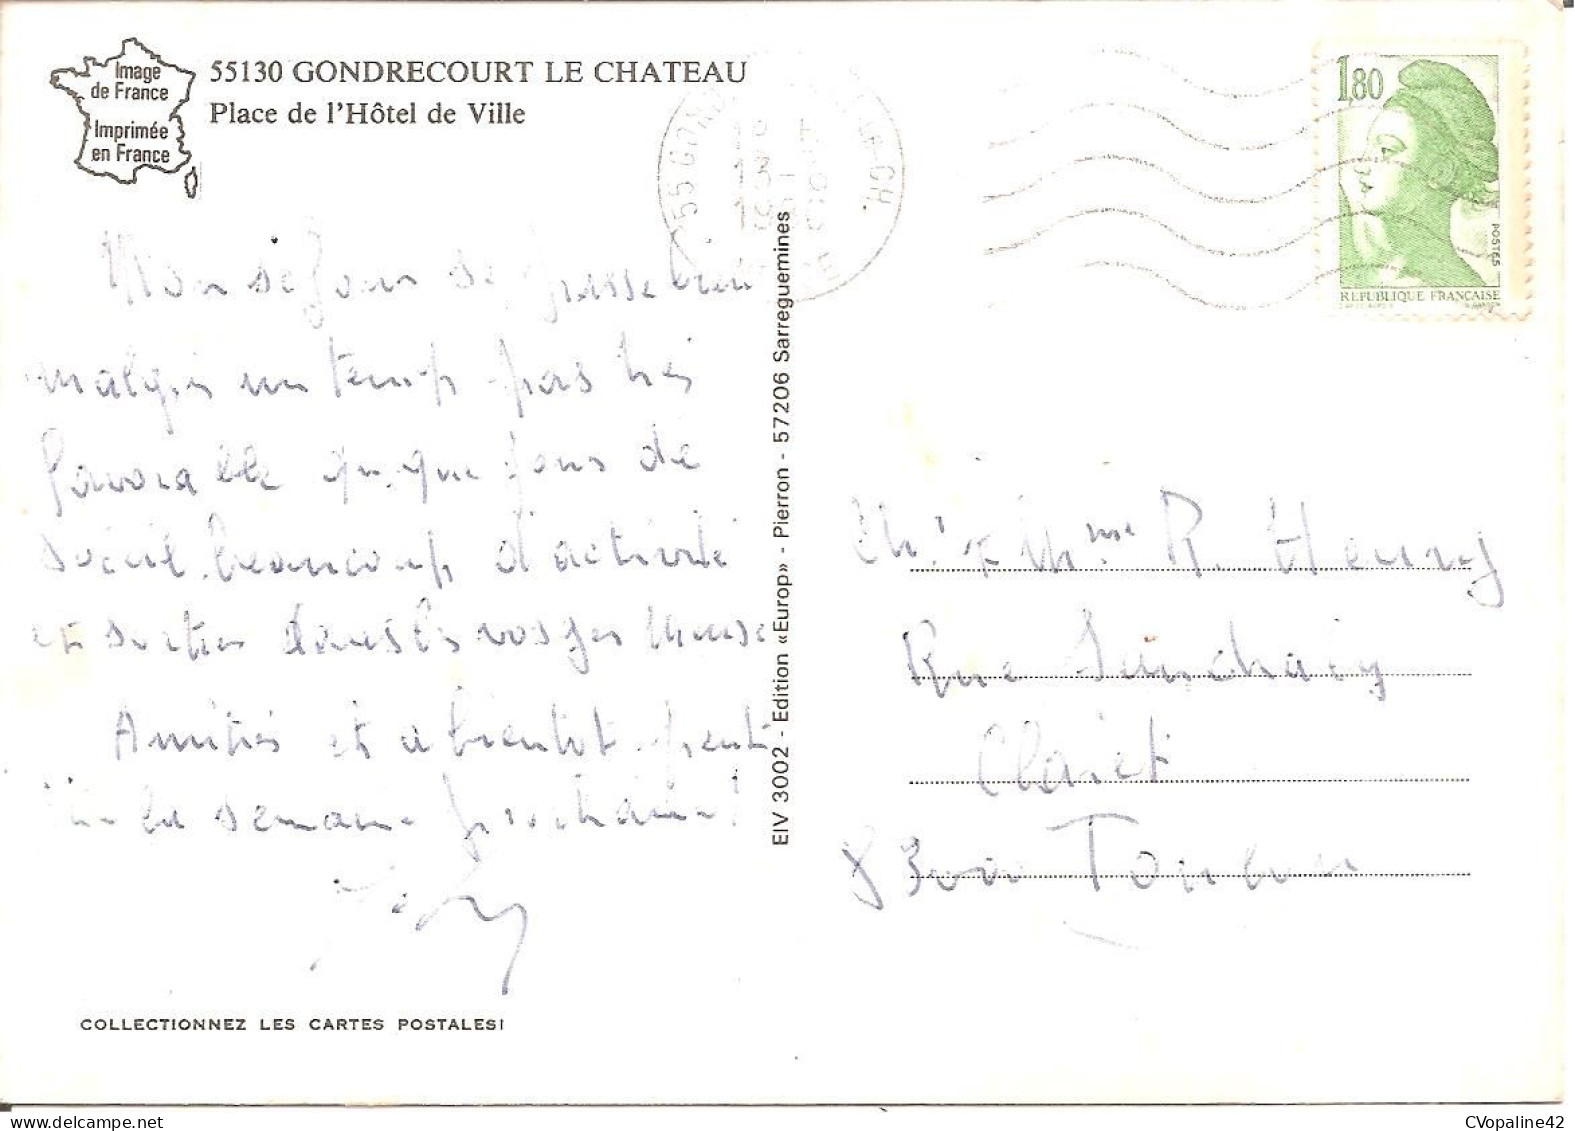 Image
de France
Imprimée
en France
55130 GONDRECOURT LE CHATEAU
Place de l'Hôtel de Ville
55 GOND
13
1,80
POSTES
REPUBLIQUE FRANÇAISE
Mon séjour se passe bien
malgré un temps pas très
favorable quelques jours de
soleil. beaucoup d'activité
et sorties dans les vosges Meuse
Amitiés et a bientot peut
être la semaine prochaine!
EIV 3002 - Edition «Europ» - Pierron - 57206 Sarreguemines
Mr & Mme R. Henry
Rue
Claret
83000 Toulon
COLLECTIONNEZ LES CARTES POSTALES!
CVopaline42